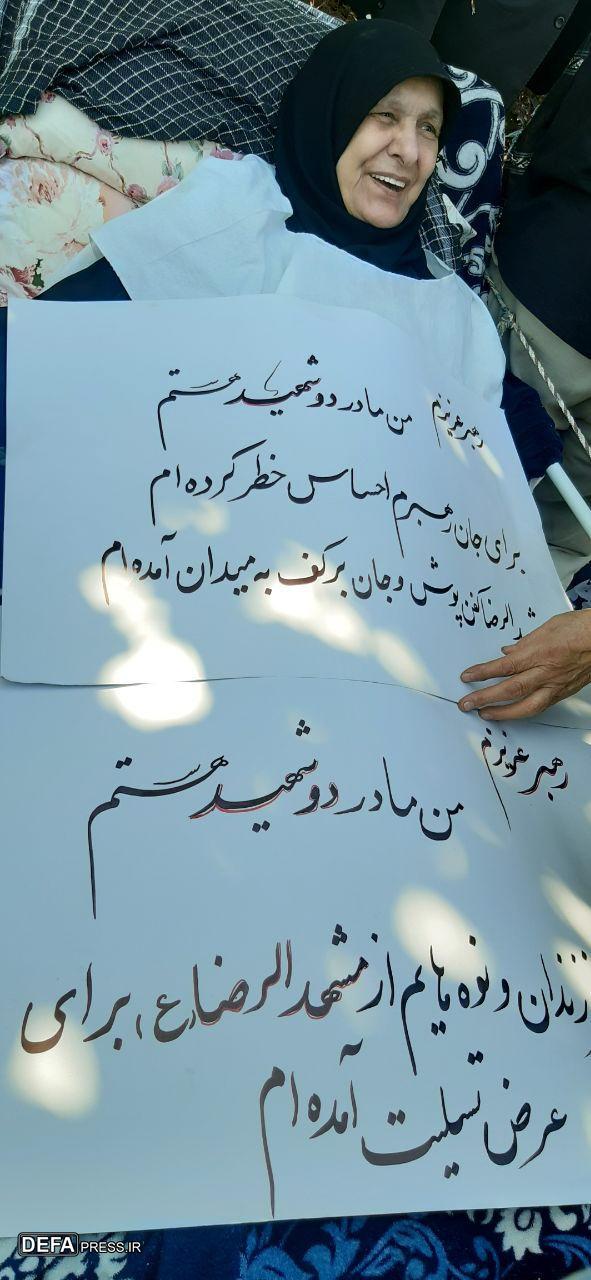 رهبر عزیزم من مادر دو شهید هستم
برای جان رهبرم احساس خطر کرده ام
شد الرضا کفن پوش و جان بر کف به میدان آمده ام
رهبر عزیزم
من مادر دو شهید هستم
رزندان و نوه هایم از مشهد الرضا (ع) برای
عرض تسلیت آمده ام
DEFAPRESS.IR